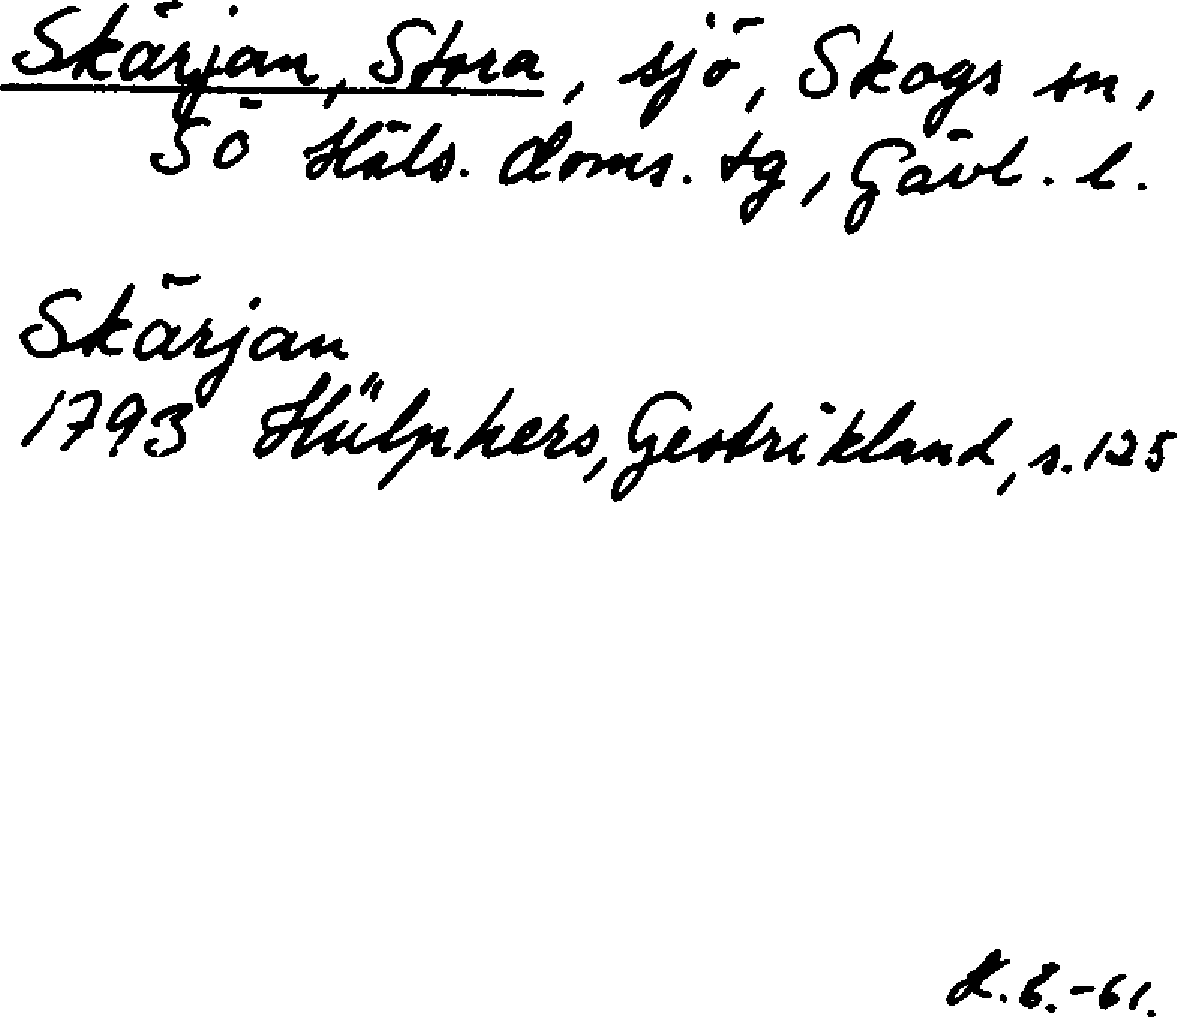 Skärjan, Stora, sjö, Skogs sn,
SÖ Häls. doms. tg, Gävl. l.
Skärjan
1793 Hülphers, Gestrikland, s. 125
K.B.-61.